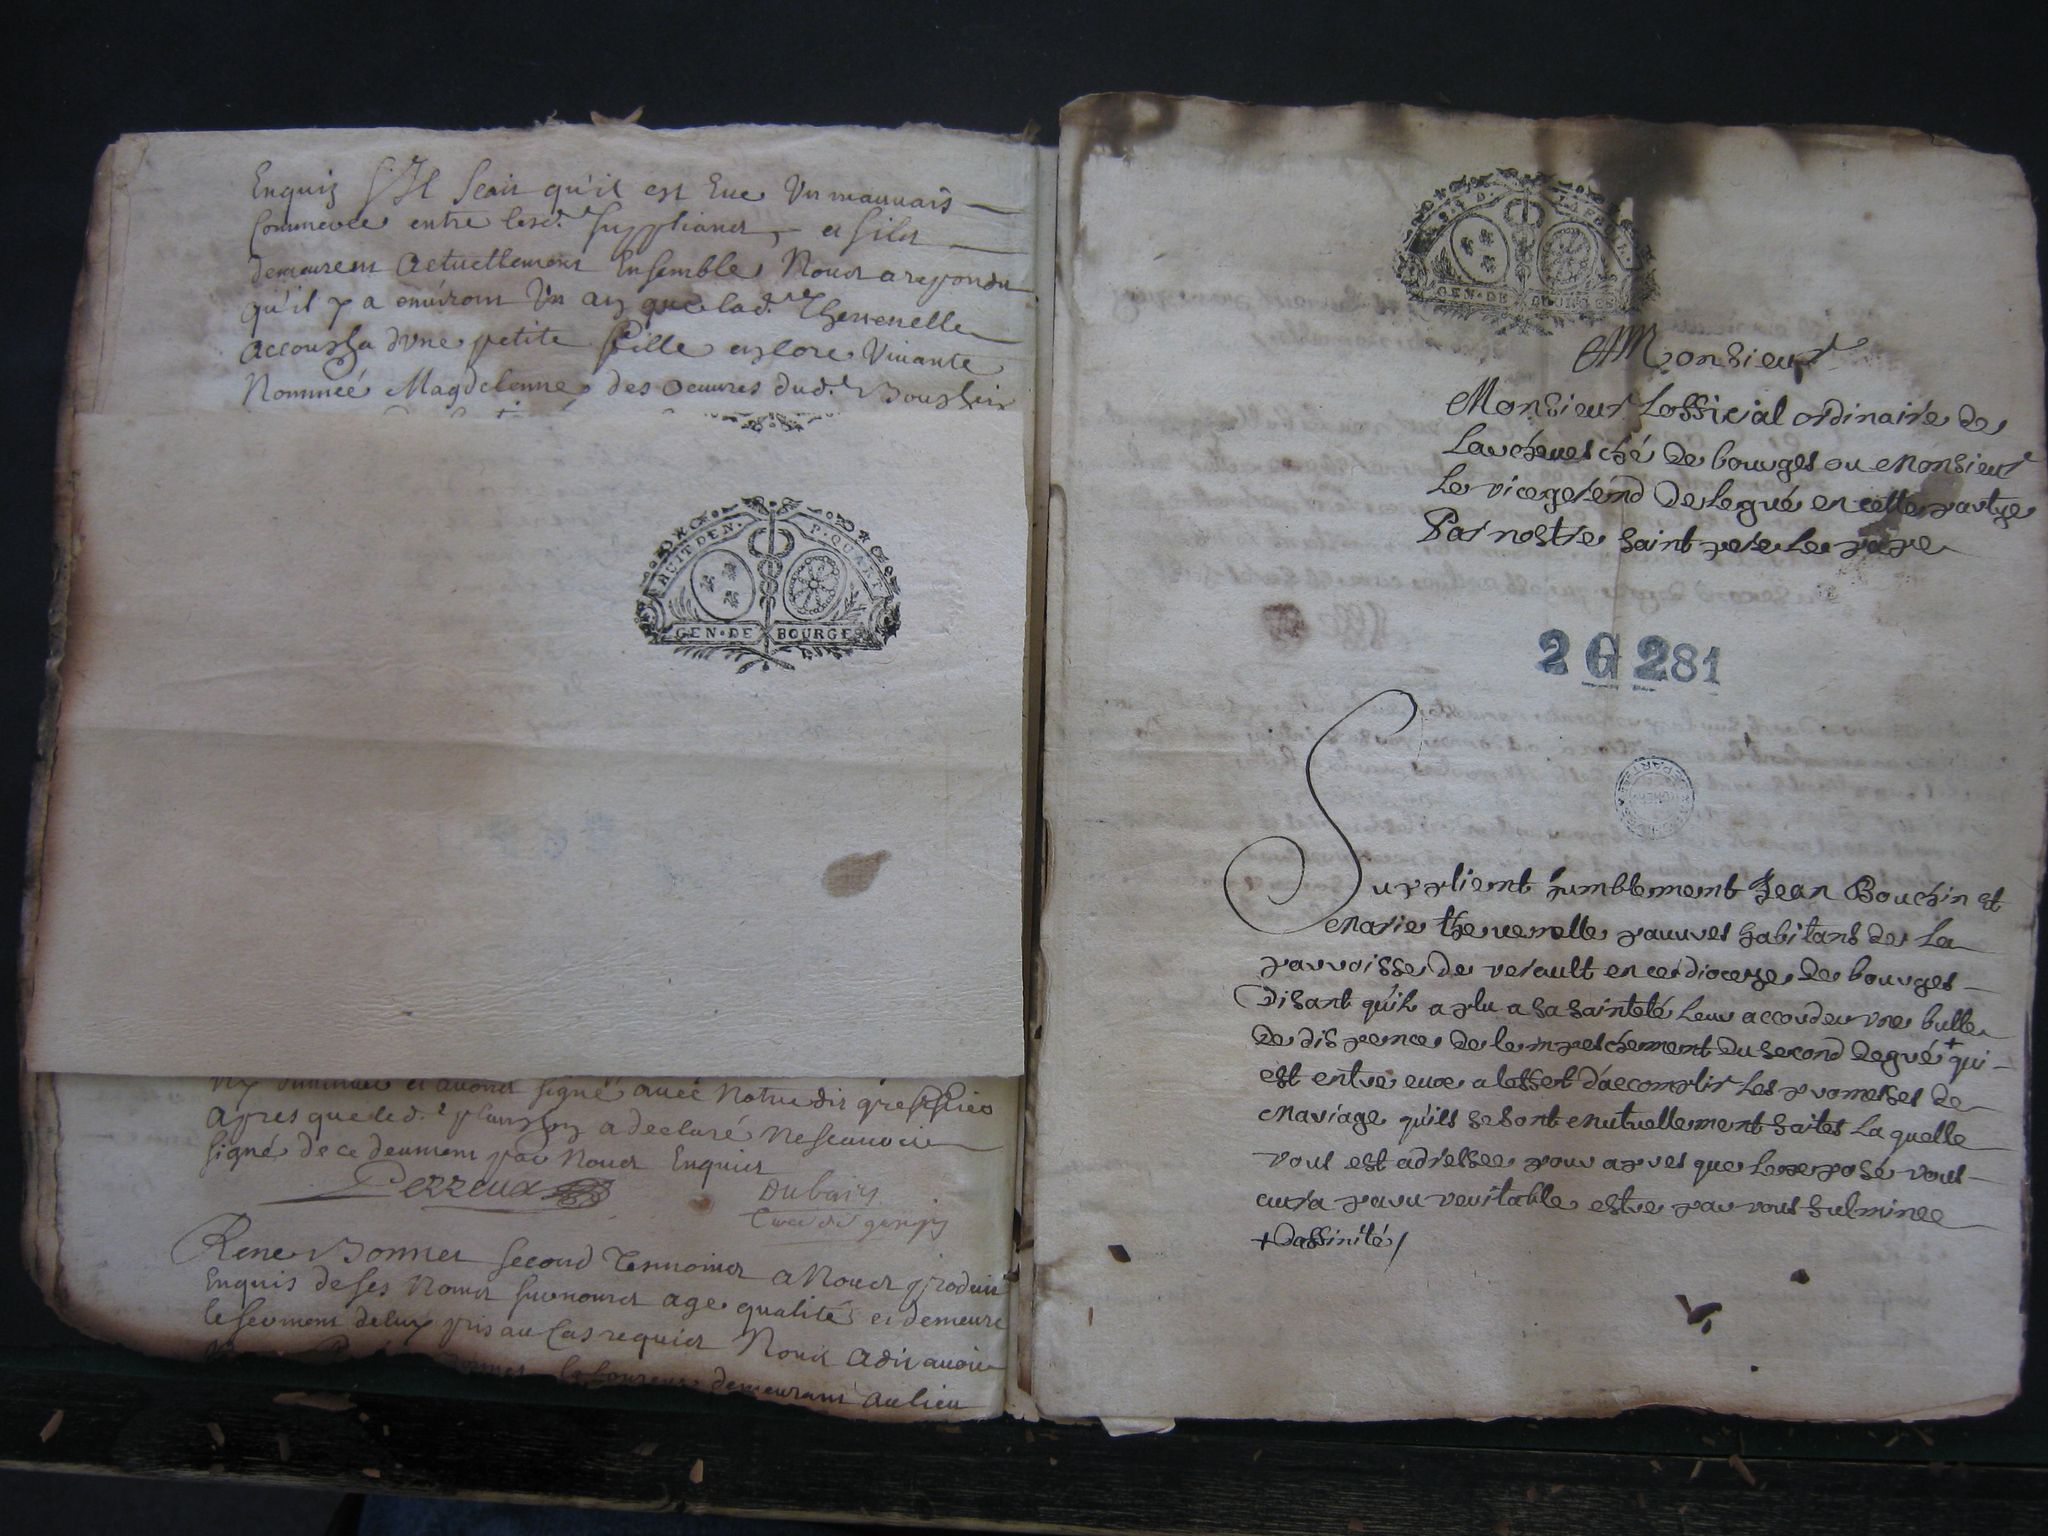 Enquis s'Il scait qu'il est Eue Un mauuais
Commerce entre lesd. supplians, et sils
demeurent Actuellement Ensemble, Nous a repondu
qu'il y a enuiron Un an que lad. Theuenelle
accoucha d'vne petite fille encore Viuante
Nommeé Magdelenne, des oeuures dud. Bouchin
HUIT DEN. P. QUART
GEN. DE BOURGES
signé auec Notredit greffier
apres que led. a declaré Ne scauoir
signé de ce deument par Nous Enquis
Perreux
Dubois
Curé de
Rene Bonnet second Tesmoins a Nous produit
Enquis de ses Noms surnoms age qualité et demeure
le serment de luy pris au Cas requis Nous a dit auoir
demeurant au lieu
GEN. DE BOURGES
A Monsieur
Monsieur Lofficial ordinaire de
Larcheuesché de bourges ou Monsieur
Le vicegerend Delegué en cette partye
Par nostre saint pere Le pape
2 G 281
Supplient humblement Jean Bouchin et
Marie theuenelle pauures habitans de La
parroisse de verault en ce dioceze de bourges
Disant qu'il a plu a sa sainteté Leur accorder vne bulle
De dispence de lempeschement du second degré + qui
est entre eux a leffect d'accomplir les promesses de
Mariage qu'ils se sont Mutuellement faites La quelle
vous est adressee pour apres que Lexposé vous
aura paru veritable estre par vous fulminee
+ Daffinité /